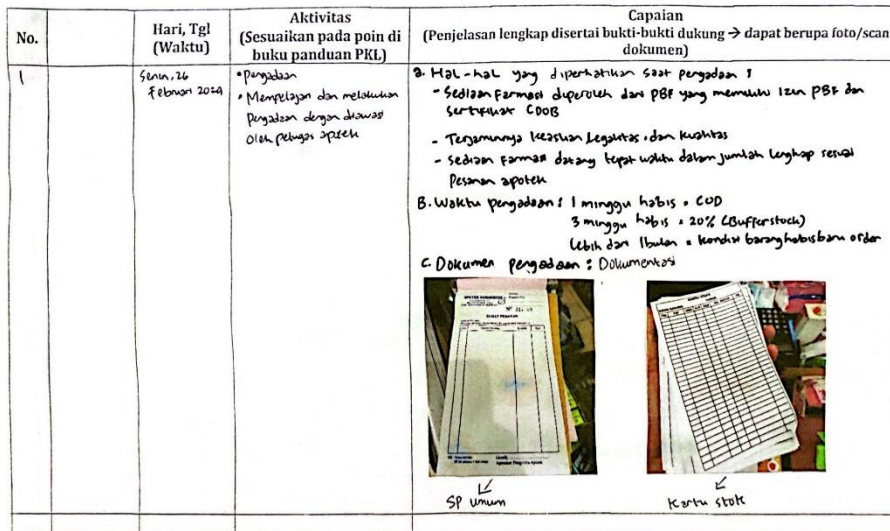 No.
Hari, Tgl
(Waktu)
Aktivitas
(Sesuaikan pada poin di
buku panduan PKL)
Capaian
(Penjelasan lengkap disertai bukti-bukti dukung → dapat berupa foto/scan
dokumen)
1
Senin, 26
Februari 2024
• Pengadaan
• Mempelajari dan melakukan
Pengadaan dengan diawasi
Oleh petugas apotek
a. Hal-hal yang diperhatikan saat pengadaan :
- Sediaan Farmasi diperoleh dari PBF yang memiliki izin PBF dan
Sertifikat CDOB
- Terjaminnya keaslian, legalitas, dan kualitas
- Sediaan Farmasi datang tepat waktu dalam jumlah lengkap sesuai
Pesanan apotek
B. Waktu pengadaan : 1 minggu habis = COD
3 minggu habis = 20% (Bufferstock)
Lebih dari 1 bulan = kondisi barang habis baru order
C. Dokumen pengadaan : Dokumentasi
SURAT PESANAN
SP Umum
Kartu stok